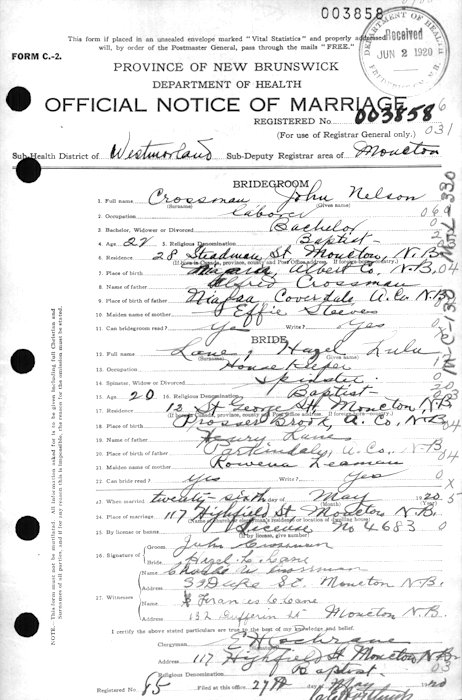 003858
This form if placed in an unsealed envelope marked "Vital Statistics" and properly addressed
will, by order of the Postmaster General, pass through the mails "FREE."
DEPARTMENT OF HEALTH
Received
JUN 2 1920
FREDERICTON, N.B.
FORM C.-2.
PROVINCE OF NEW BRUNSWICK
DEPARTMENT OF HEALTH
OFFICIAL NOTICE OF MARRIAGE
REGISTERED No. 003858
(For use of Registrar General only.)
031
Sub-Health District of Westmorland Sub-Deputy Registrar area of Moncton
BRIDEGROOM
1. Full name Crossman John Nelson
(Surname) (Given name)
2. Occupation Laborer
3. Bachelor, Widower or Divorced Bachelor
4. Age 22 5. Religious Denomination Baptist
6. Residence 28 Steadman St Moncton N.B.
7. Place of birth Albert Co. N.B.
8. Name of father Alfred Crossman
9. Place of birth Coverdale, A. Co. N.B.
10. Maiden name of mother Effie Steeves
11. Can bridegroom read? Yes Write? Yes
BRIDE
12. Full name Lane, Hazel Lulu
(Surname) (Given name)
13. Occupation House Keeper
14. Spinster, Widow or Divorced Spinster
15. Age 20 16. Religious Denomination Baptist
17. Residence 12 St George St Moncton, N.B.
18. Place of birth Prosser Brook, A. Co., N.B.
19. Name of father Henry Lane
20. Place of birth Parkindale, A. Co., N.B.
21. Maiden name of mother Rowena Leaman
22. Can bride read? Yes Write? Yes
23. When married twenty-sixth day of May 1920
24. Place of marriage 117 Highfield St. Moncton N.B.
25. By license or banns License No 4683
(If by license, give number)
26. Signature of
Groom John Crossman
Bride Hazel L. Lane
27. Witnesses
Name Crossman
St. Moncton N.B.
Frances C Lane
132 Dufferin St Moncton N.B.
I certify the above stated particulars are true to the best of my knowledge and belief.
Clergyman E H Cochrane
Address 117 Highfield St Moncton N.B.
Religious Denomination Baptist
Registered No. 85 Filed at this office 27th May 1920
NOTE.—This form must not be mutilated. All information asked for is to be given including full Christian and
Surnames of all parties, and if for any reason this is impossible, the reason for the omission must be stated.